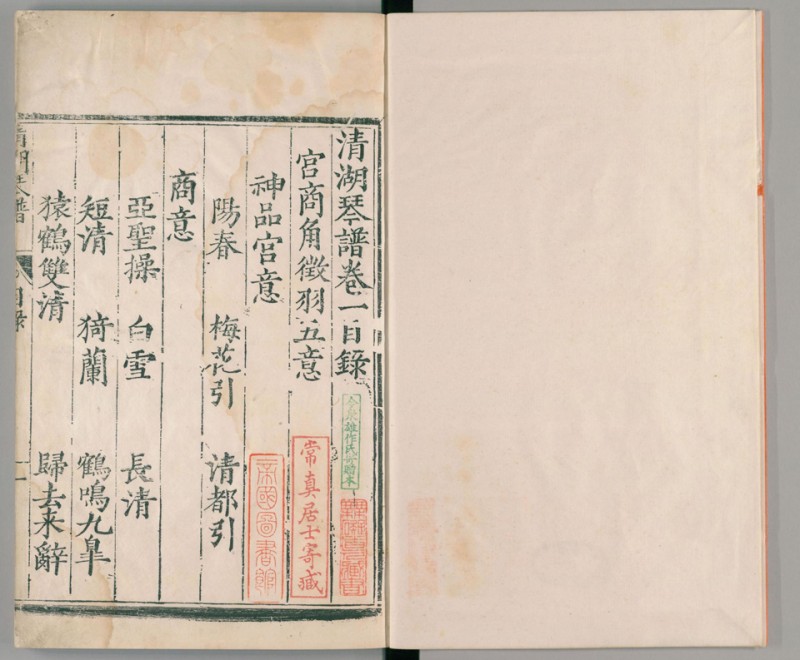 清湖琴譜卷一目錄
宫商角徵羽五意
神品宫意
陽春 梅花引 清都引
商意
亞聖操 白雪 長清
短清 猗蘭 鶴鳴九臯
猿鶴雙清 歸去来辭
清湖琴譜 目錄 一
常真居士寄藏
帝國圖書館